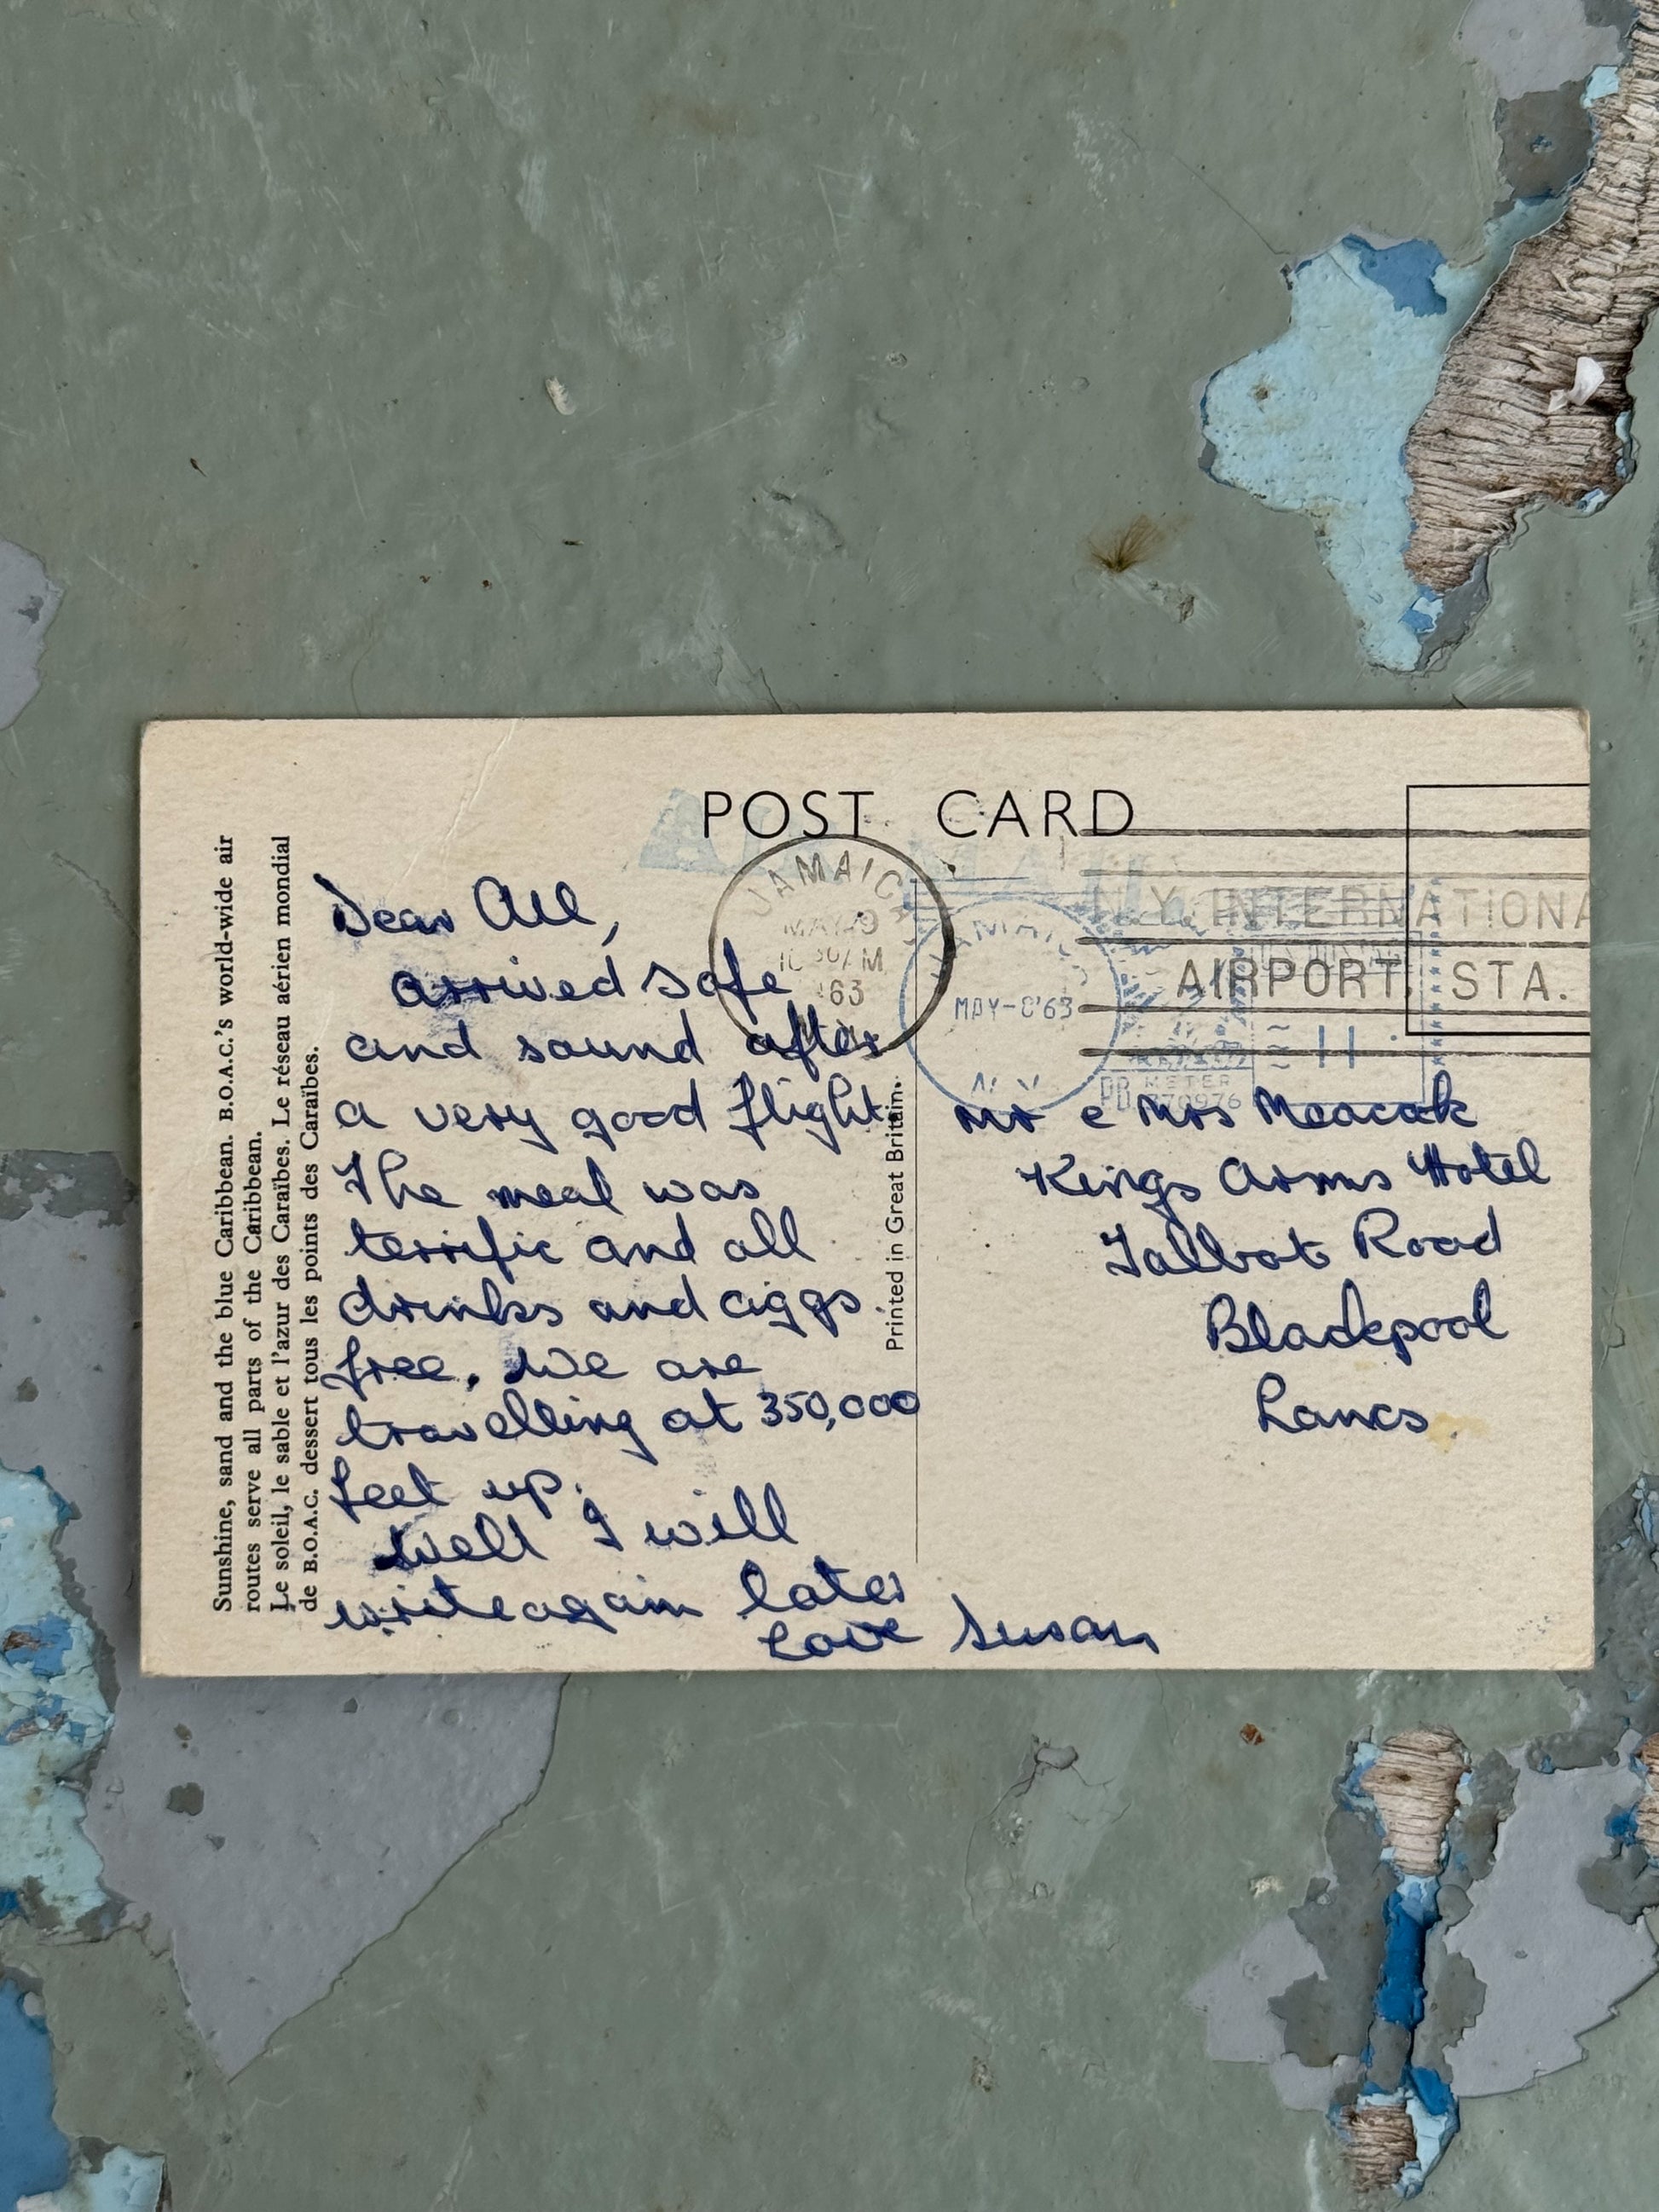 POST CARD
Sunshine, sand and the blue Caribbean. B.O.A.C.'s world-wide air
routes serve all parts of the Caribbean.
Le soleil, le sable et l'azur des Caraïbes. Le réseau aérien mondial
de B.O.A.C. dessert tous les points des Caraïbes.
Dear All,
arrived safe
and sound after
a very good flight.
The meal was
terrific and all
drinks and ciggs
free. We are
travelling at 350,000
feet up.
Well I will
write again later
Love Susan
Printed in Great Britain.
JAMAICA
MAY 9
AM
63
N.Y. INTERNATIONA
AIRPORT, STA.
MAY-8'63
N.Y.
11
METER
Mr & Mrs Meacock
Kings Arms Hotel
Talbot Road
Blackpool
Lancs